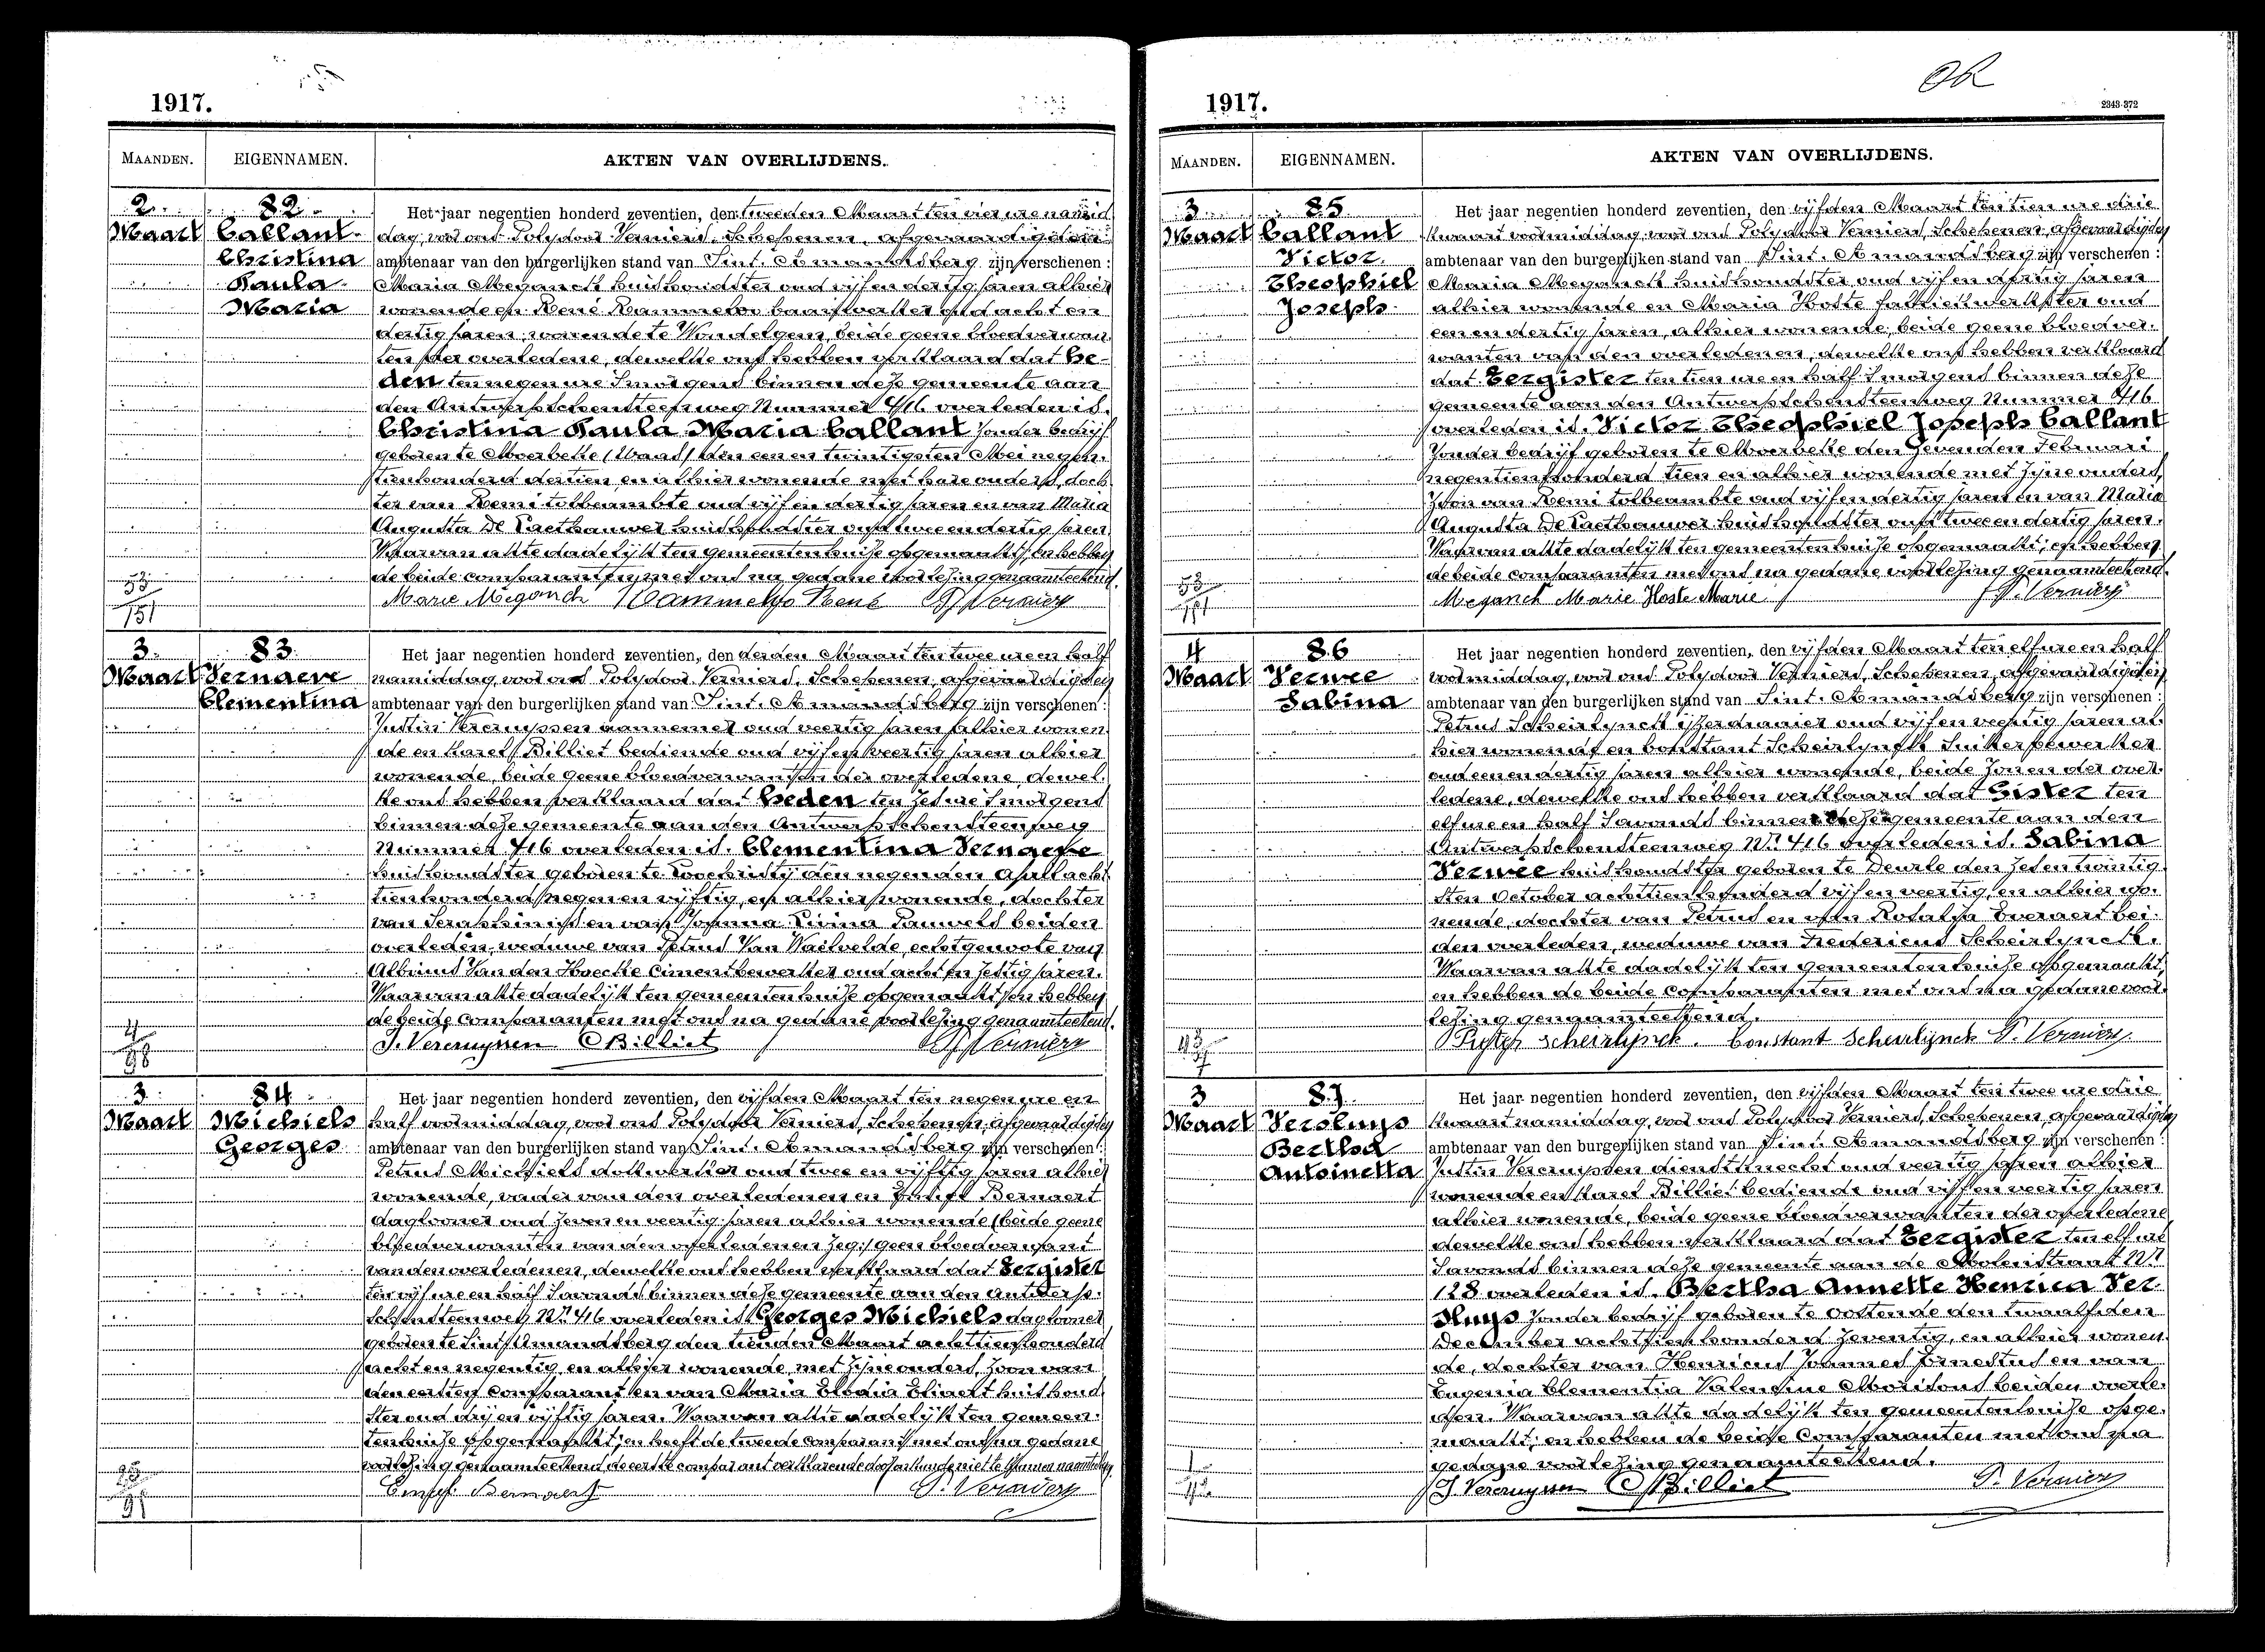 1917.
MAANDEN. EIGENNAMEN. AKTEN VAN OVERLIJDENS.
2 82
Maart Callant
Christina
Paula
Maria
Het jaar negentien honderd zeventien, den tweeden Maart ten vier ure namid
dag, voor ons Polydoor Verniers, Schepenen, afgevaardigden
ambtenaar van den burgerlijken stand van Sint. Amandsberg zijn verschenen :
Maria Meganck huishoudster oud vijf en dertig jaren alhier
wonende en René Rammeloo oud acht en
dertig jaren, wonende te Wondelgem, beide geene bloedverwan
ten der overledene, dewelke ons hebben verklaard dat he-
den ten negen ure 's morgens binnen deze gemeente aan
den Antwerpschensteenweg Nummer 716 overleden is.
Christina Paula Maria Callant zonder bedrijf
geboren te Moerbeke (Waas) den een en twintigsten Mei negen-
tienhonderd dertien en alhier wonende met hare ouders, doch
ter van Remi tolbeambte oud vijf en dertig jaren en van Maria
Augusta De Caethauwer huishoudster oud twee en dertig jaren.
Waarvan akte dadelijk ten gemeentenhuize opgemaakt; en hebben
de beide comparanten met ons na gedane voorlezing genaamteekend.
Marie Meganck Rammeloo René P. Verniers
53
151
3 83
Maart Vernaeve
Clementina
Het jaar negentien honderd zeventien, den derden Maart ten twee ure en half
namiddag, voor ons Polydoor Verniers, Schepenen, afgevaardigden
ambtenaar van den burgerlijken stand van Sint. Amandsberg zijn verschenen :
Justin Vercruyssen aannemer oud veertig jaren alhier wonen
de en Karel Billiet bediende oud vijf en veertig jaren alhier
wonende, beide geene bloedverwanten der overledene, dewel-
ke ons hebben verklaard dat heden ten zes ure 's morgens
binnen deze gemeente aan den Antwerpschensteenweg
Nummer 716 overleden is. Clementina Vernaeve
huishoudster geboren te Loochristy den negenden April acht
tienhonderd negen en vijftig, en alhier wonende, dochter
van Seraphinus en van Joanna Livina Pauwels beiden
overleden, weduwe van Petrus Van Waelvelde, echtgenoote van
Albinus Van den Hoecke Cimentbewerker oud acht en zestig jaren.
Waarvan akte dadelijk ten gemeentenhuize opgemaakt, en hebben
de beide Comparanten met ons na gedane voorlezing genaamteekend.
J. Vercruyssen C Billiet P. Verniers
98
3 84
Maart Michiels
Georges
Het jaar negentien honderd zeventien, den vijfden Maart ten negen ure en
half voormiddag, voor ons Polydoor Verniers, Schepenen, afgevaardigden
ambtenaar van den burgerlijken stand van Sint. Amandsberg zijn verschenen :
Petrus Michiels dokwerker oud twee en vijftig jaren alhier
wonende, vader van den overledenen en Bernaert
daglooner oud zeven en veertig jaren alhier wonende (beide geene
bloedverwanten van den overledenen zeg:) geen bloedverwant
van den overledenen, dewelke ons hebben verklaard dat Eergister
ten vijf ure en half 's avonds binnen deze gemeente aan den Antwerp-
schensteenweg Nr. 716 overleden is Georges Michiels daglooner
geboren te Sint Amandsberg den tienden Maart achttienhonderd
acht en negentig en alhier wonende, met zijne ouders, zoon van
den eersten Comparant en van Maria Elodia huishoud
ster oud drij en vijftig jaren. Waarvan akte dadelijk ten gemeen-
tenhuize opgemaakt; en heeft de tweede comparant met ons na gedane
voorlezing genaamteekend de eerste comparant verklarende niet te kunnen naamteekenen
Bernaert P. Verniers
1917.
OK
2343-372
MAANDEN. EIGENNAMEN. AKTEN VAN OVERLIJDENS.
3 85
Maart Callant
Victor.
Theophiel
Joseph
Het jaar negentien honderd zeventien, den vijfden Maart ten tien ure drie
kwaart voormiddag, voor ons Polydoor Verniers, Schepenen, afgevaardigden
ambtenaar van den burgerlijken stand van Sint. Amandsberg zijn verschenen :
Maria Meganck huishoudster oud vijf en dertig jaren
alhier wonende en Maria Hoste fabriekwerkster oud
een en dertig jaren, alhier wonende, beide geene bloedver-
wanten van den overledenen, dewelke ons hebben verklaard
dat Eergister ten tien ure en half 's morgens binnen deze
gemeente aan den Antwerpschensteenweg Nummer 716
overleden is. Victor Theophiel Joseph Callant
zonder bedrijf geboren te Moerbeke den zevenden Februari
negentienhonderd tien en alhier wonende met zijne ouders,
zoon van Remi tolbeambte oud vijf en dertig jaren en van Maria
Augusta De Caethauwer huishoudster oud twee en dertig jaren.
Waarvan akte dadelijk ten gemeentenhuize opgemaakt; en hebben
de beide comparanten met ons na gedane voorlezing genaamteekend.
Meganck Marie Hoste Marie P. Verniers
53
151
4 86
Maart Verwee
Sabina
Het jaar negentien honderd zeventien, den vijfden Maart ten elf ure en half
voormiddag, voor ons Polydoor Verniers, Schepenen, afgevaardigden
ambtenaar van den burgerlijken stand van Sint. Amandsberg zijn verschenen :
Petrus Scheirlynck ijzerdraaier oud vijf en veertig jaren al-
hier wonende en Constant Scheirlynck Suikerbewerker
oud een en dertig jaren alhier wonende, beide zonen der over-
ledene, dewelke ons hebben verklaard dat Gister ten
elf ure en half 's avonds binnen deze gemeente aan den
Antwerpschensteenweg Nr. 716 overleden is. Sabina
Verwee huishoudster geboren te Deurle den zes en twintig
sten October achttienhonderd vijf en veertig, en alhier wo-
nende, dochter van Petrus en van Rosalia Everaert bei-
den overleden, weduwe van Fredericus Scheirlynck.
Waarvan akte dadelijk ten gemeentenhuize opgemaakt,
en hebben de beide Comparanten met ons na gedane voor-
lezing genaamteekend.
Scheirlynck. Constant Scheirlynck P. Verniers
3 87
Maart Versluys
Bertha
Antoinetta
Het jaar negentien honderd zeventien, den vijfden Maart ten twee ure drie
kwaart namiddag, voor ons Polydoor Verniers, Schepenen, afgevaardigden
ambtenaar van den burgerlijken stand van Sint. Amandsberg zijn verschenen :
Justin Vercruyssen dienstknecht oud veertig jaren alhier
wonende en Karel Billiet bediende oud vijf en veertig jaren
alhier wonende, beide geene bloedverwanten der overledene
dewelke ons hebben verklaard dat Eergister ten elf ure
's avonds binnen deze gemeente aan de Molenstraat Nr
128 overleden is. Bertha Annette Henrica Ver-
sluys zonder bedrijf geboren te Oostende den twaalfden
December achttienhonderd zeventig, en alhier wonen-
de, dochter van Henricus Joannes Ernestus en van
Eugenia Clementia Valentine beiden overle-
den. Waarvan akte dadelijk ten gemeentenhuize opge-
maakt; en hebben de beide Comparanten met ons na
gedane voorlezing genaamteekend.
J Vercruyssen C Billiet P. Verniers